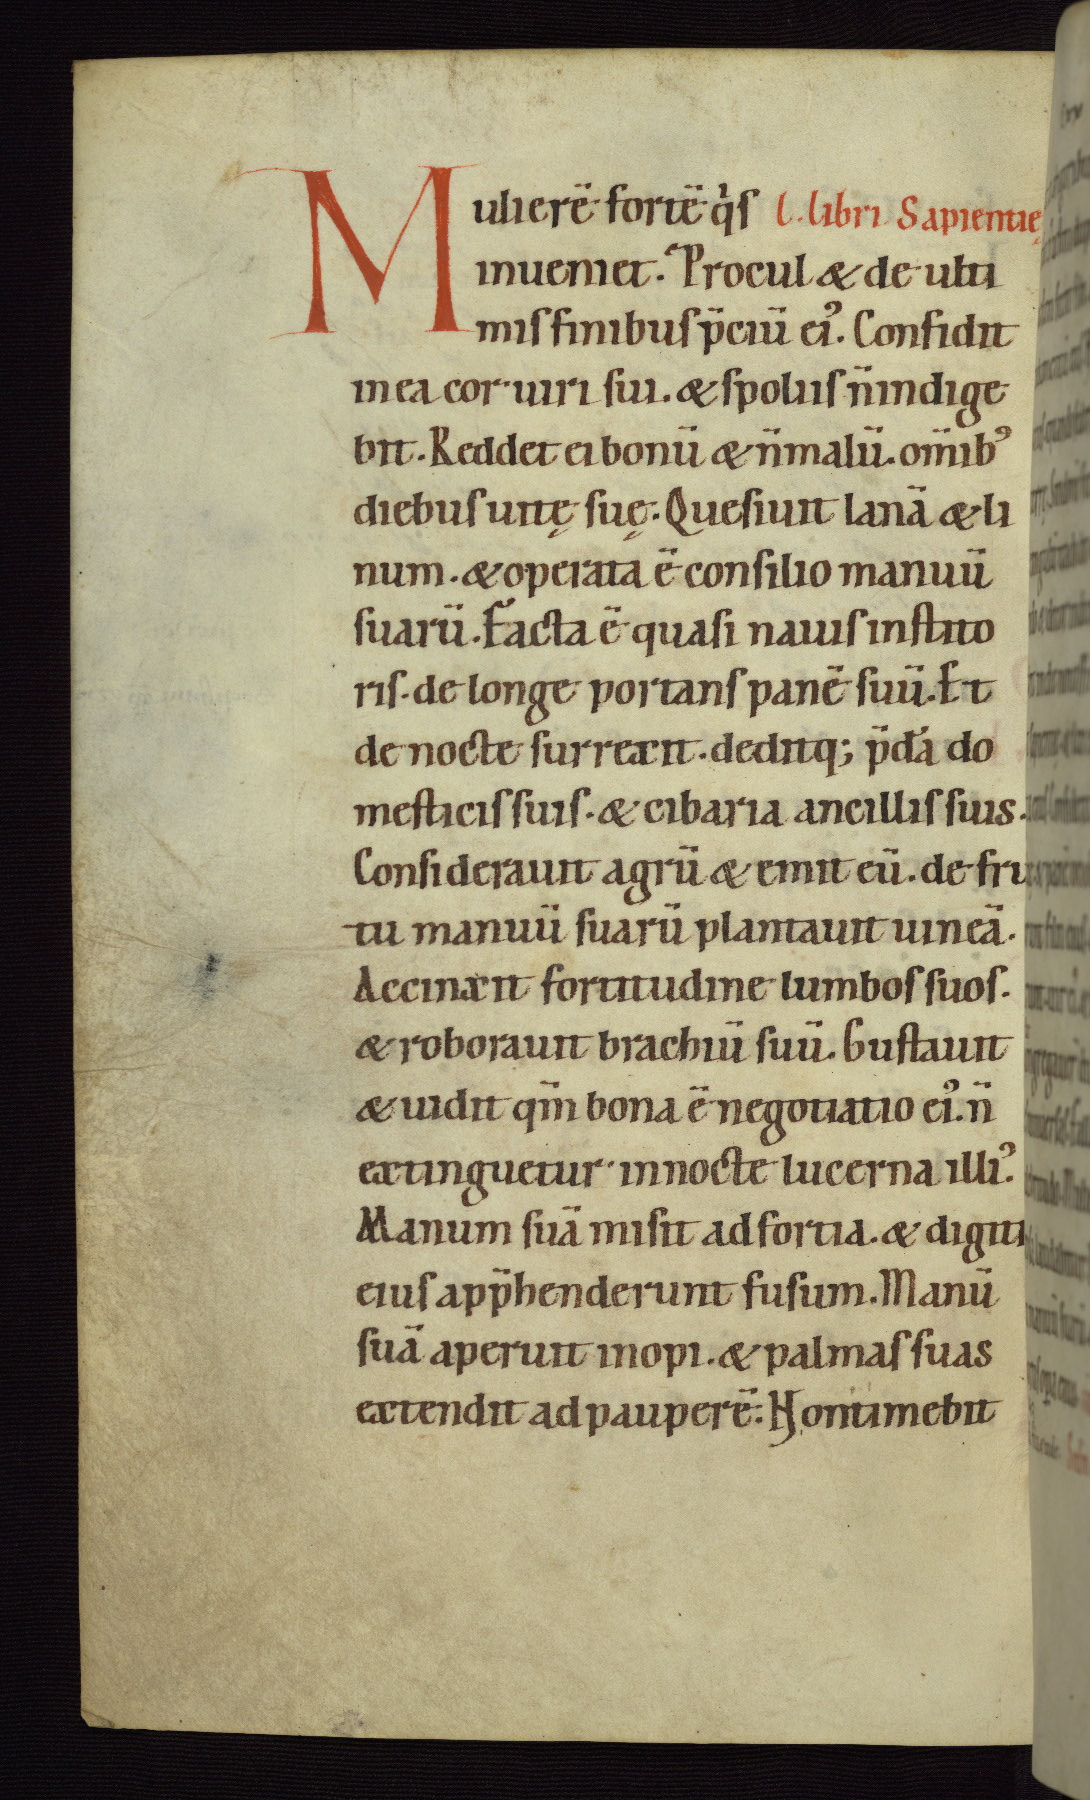 Mulierē fortē q̍s L. libri Sapientię
inueniet. Procul & de ulti
mis finibus p̄ciū ei᾿. Confidit
in ea cor uiri sui. & spoliis n̄ indige
bit. Reddet ei bonū & n̄ malū. om̄ib᾿
diebus uitę suę. Quesiuit lanā & li
num. & operata ē consilio manuū
suarū. Facta ē quasi nauis instito
ris. de longe portans panē suū. Et
de nocte surrexit. deditq; p̄dā do
mesticis suis. & cibaria ancillis suis.
Considerauit agrū & emit eū. de fru
tu manuū suarū plantauit uineā.
Accinxit fortitudine lumbos suos.
& roborauit brachiū suū. Gustauit
& uidit qm̄ bona ē negotiatio ei᾿. n̄
extinguetur in nocte lucerna illi᾿.
Manum suā misit ad fortia. & digiti
eius app̄henderunt fusum. Manū
suā aperuit inopi. & palmas suas
extendit ad pauperē. Non timebit